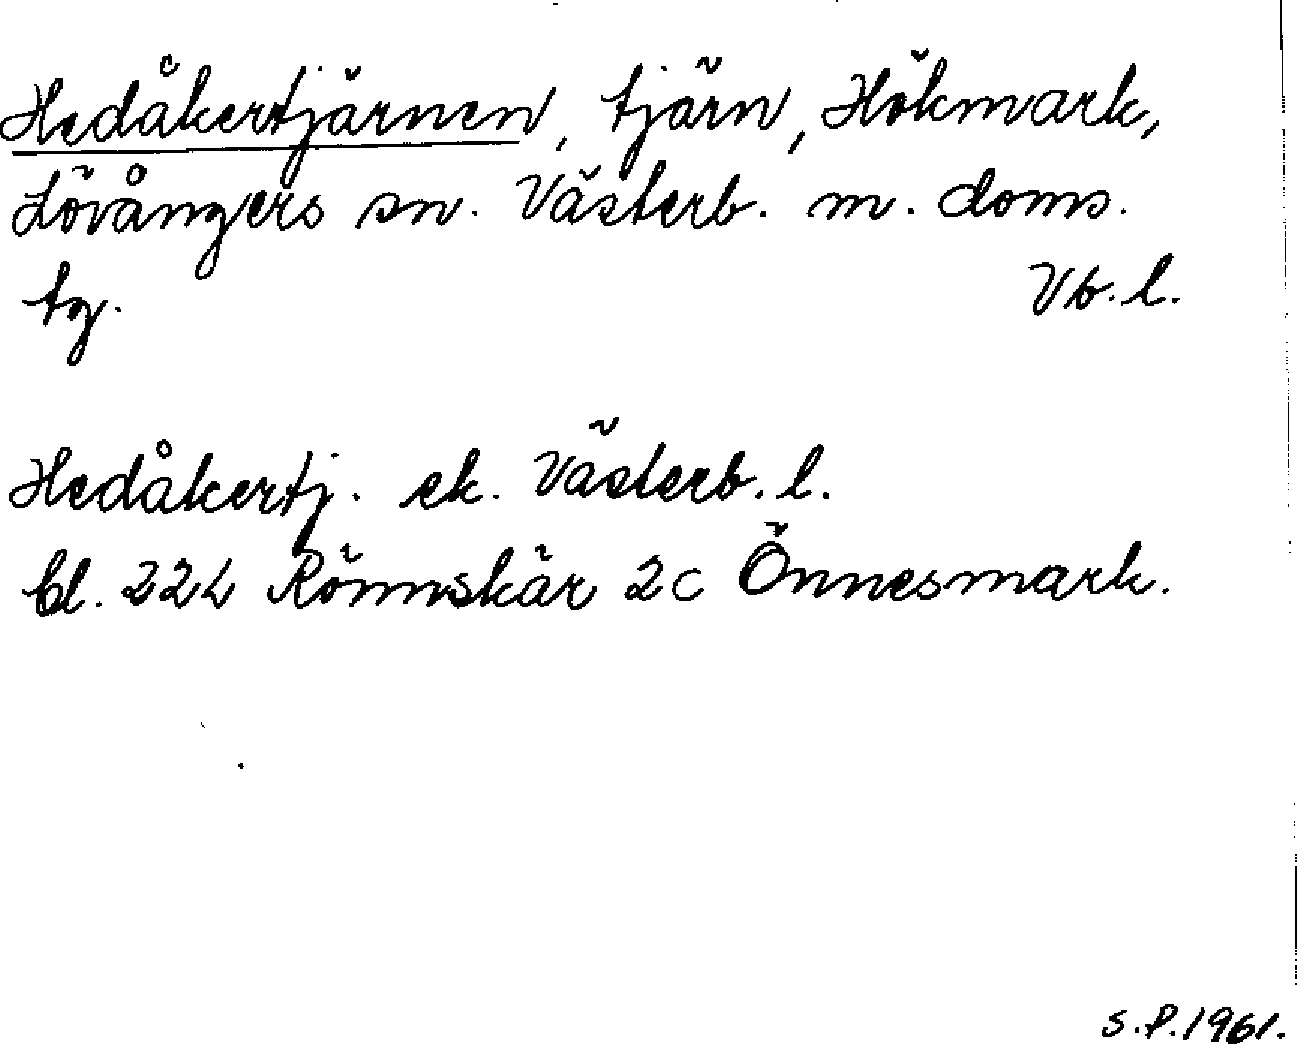 Hedåkertjärnen, tjärn, Hökmark,
Lövångers sn. Västerb. m. doms.
tg. Vb. l.
Hedåkertj. ek. Västerb. l.
bl. 22L Rönnskär 2c Önnesmark.
S.P. 1961.